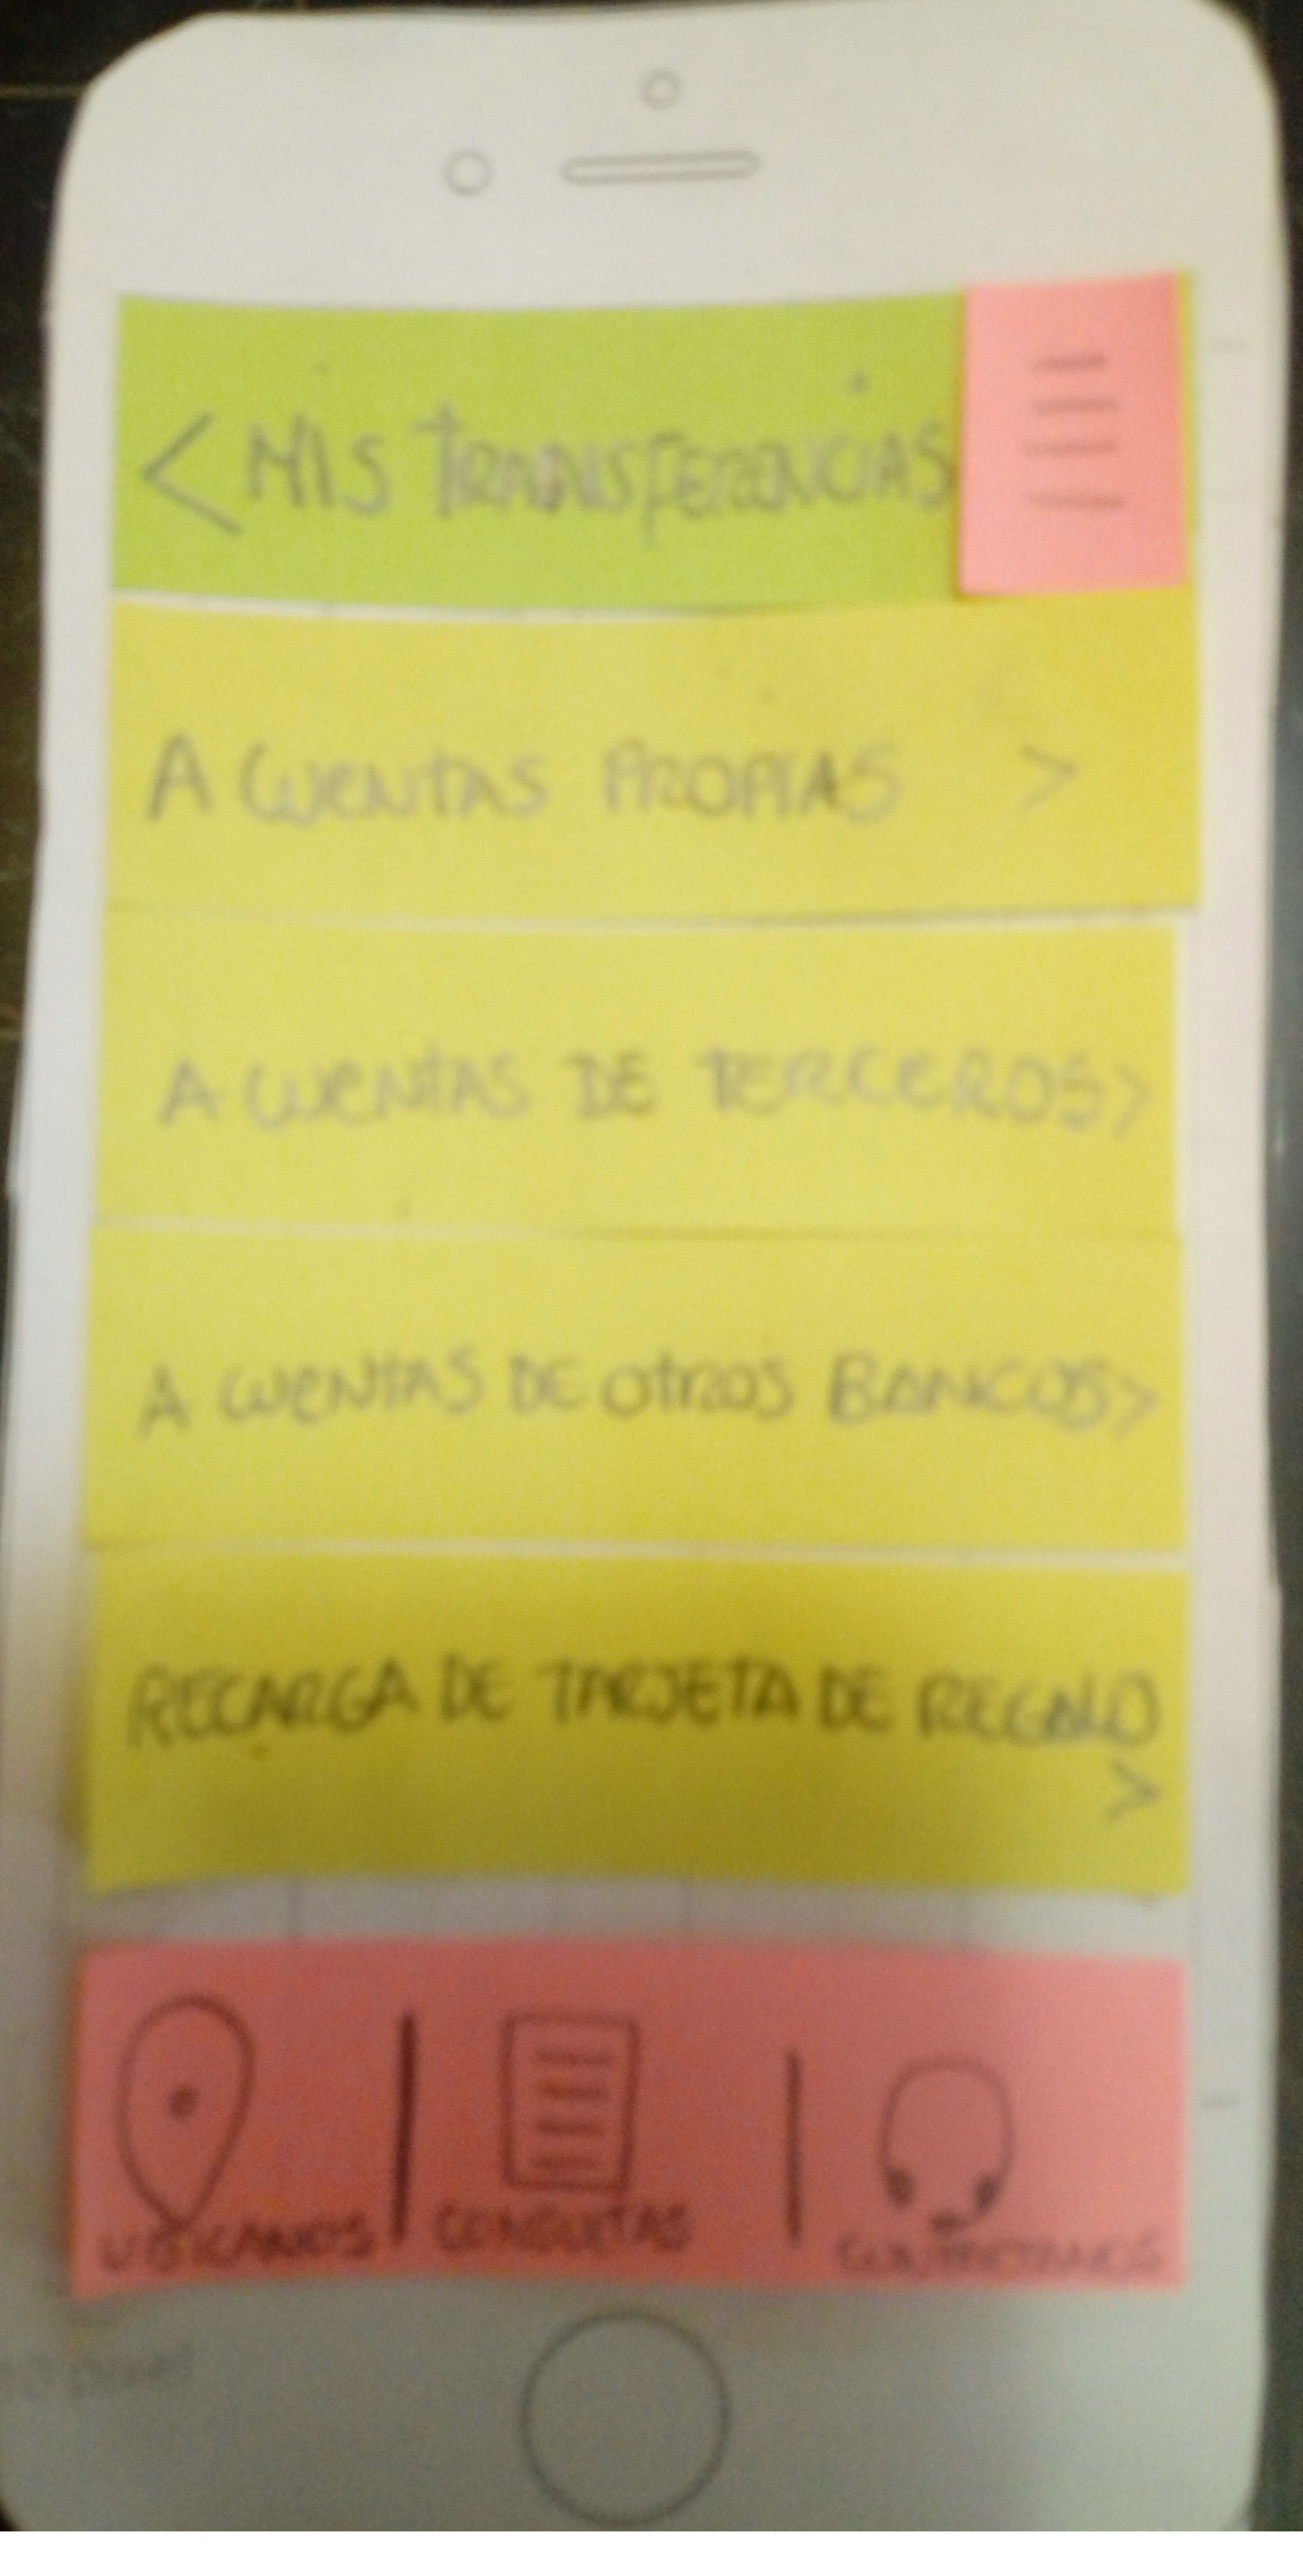 < MIS TRANSFERENCIAS
A CUENTAS PROPIAS >
A CUENTAS DE TERCEROS >
A CUENTAS DE OTROS BANCOS >
RECARGA DE TARJETA DE REGALO
>
UBICANOS | CONSULTAS | CONTACTANOS